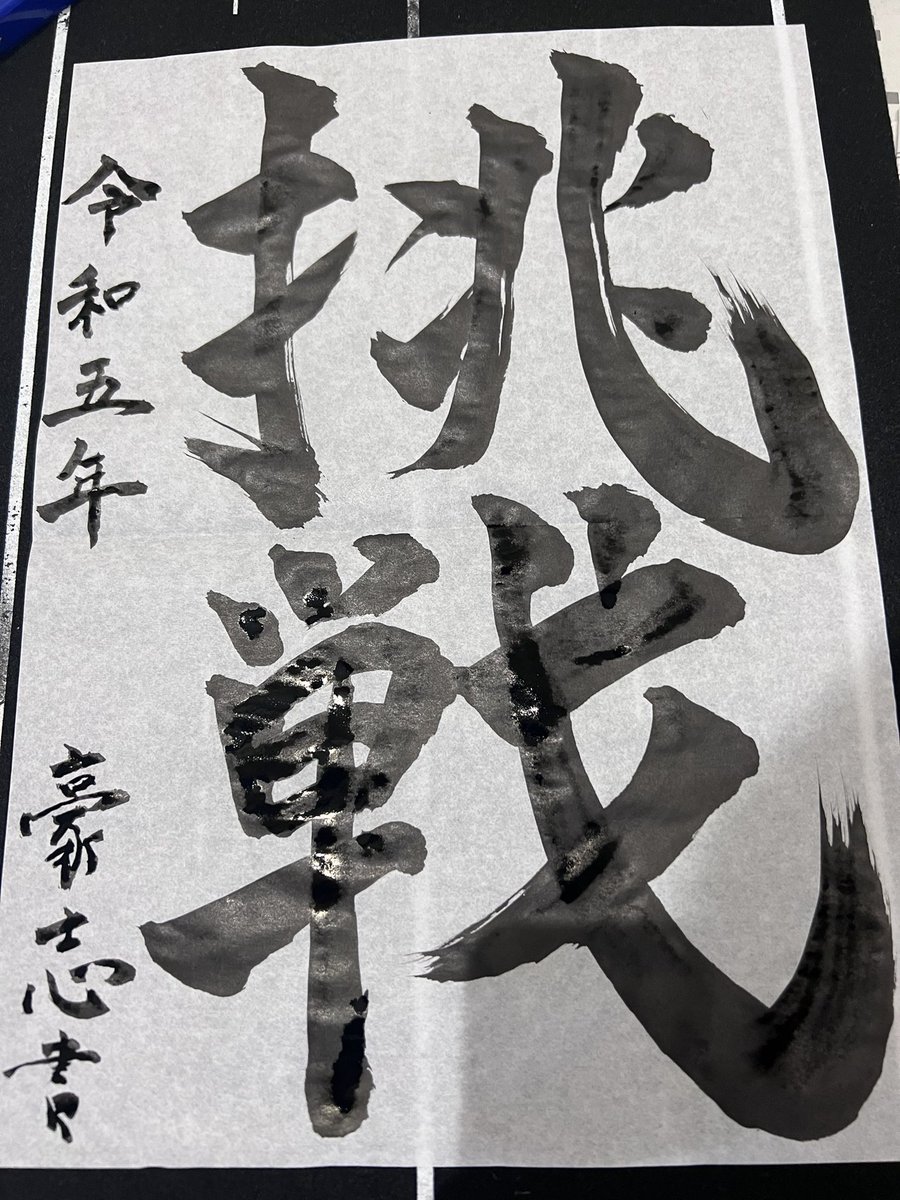 挑戦
令和五年 豪志書